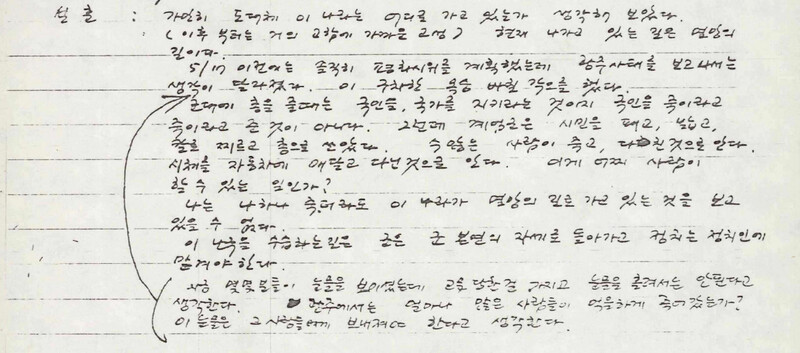 진술 : 가만히 도대체 이 나라는 어디로 가고 있는가 생각해 보았다.
( 이후 부터는 거의 고함에 가까운 고성 ) 현재 나가고 있는 길은 멸망의
길이다.
5/17 이전에는 솔직히 평화시위를 계획했는데 광주사태를 보고나서는
생각이 달라졌다. 이 구차한 목숨 버릴 각오를 했다.
군대에 총을 줄때는 국민을, 국가를 지키라는 것이지 국민을 죽이라고
죽이라고 준 것이 아니다. 그런데 계엄군은 시민을 패고,
칼로 찌르고 총으로 쏘았다. 수많은 사람이 죽고, 다친것으로 안다.
시체를 자동차에 매달고 다닌것으로 안다. 이게 어찌 사람이
할 수 있는 일인가?
나는 나하나 죽더라도 이 나라가 멸망의 길로 가고 있는 것을 보고
있을 수 없다.
이 난국을 수습하는길은 군은 군 본연의 자세로 돌아가고 정치는 정치인에
맡겨야 한다.
지금 몇몇분들이 눈물을 보이셨는데 고문당한걸 가지고 눈물을 흘려서는 안된다고
생각한다. 광주에서는 얼마나 많은 사람들이 억울하게 죽어갔는가?
이 눈물은 그 사람들에게 보내져야 한다고 생각한다.